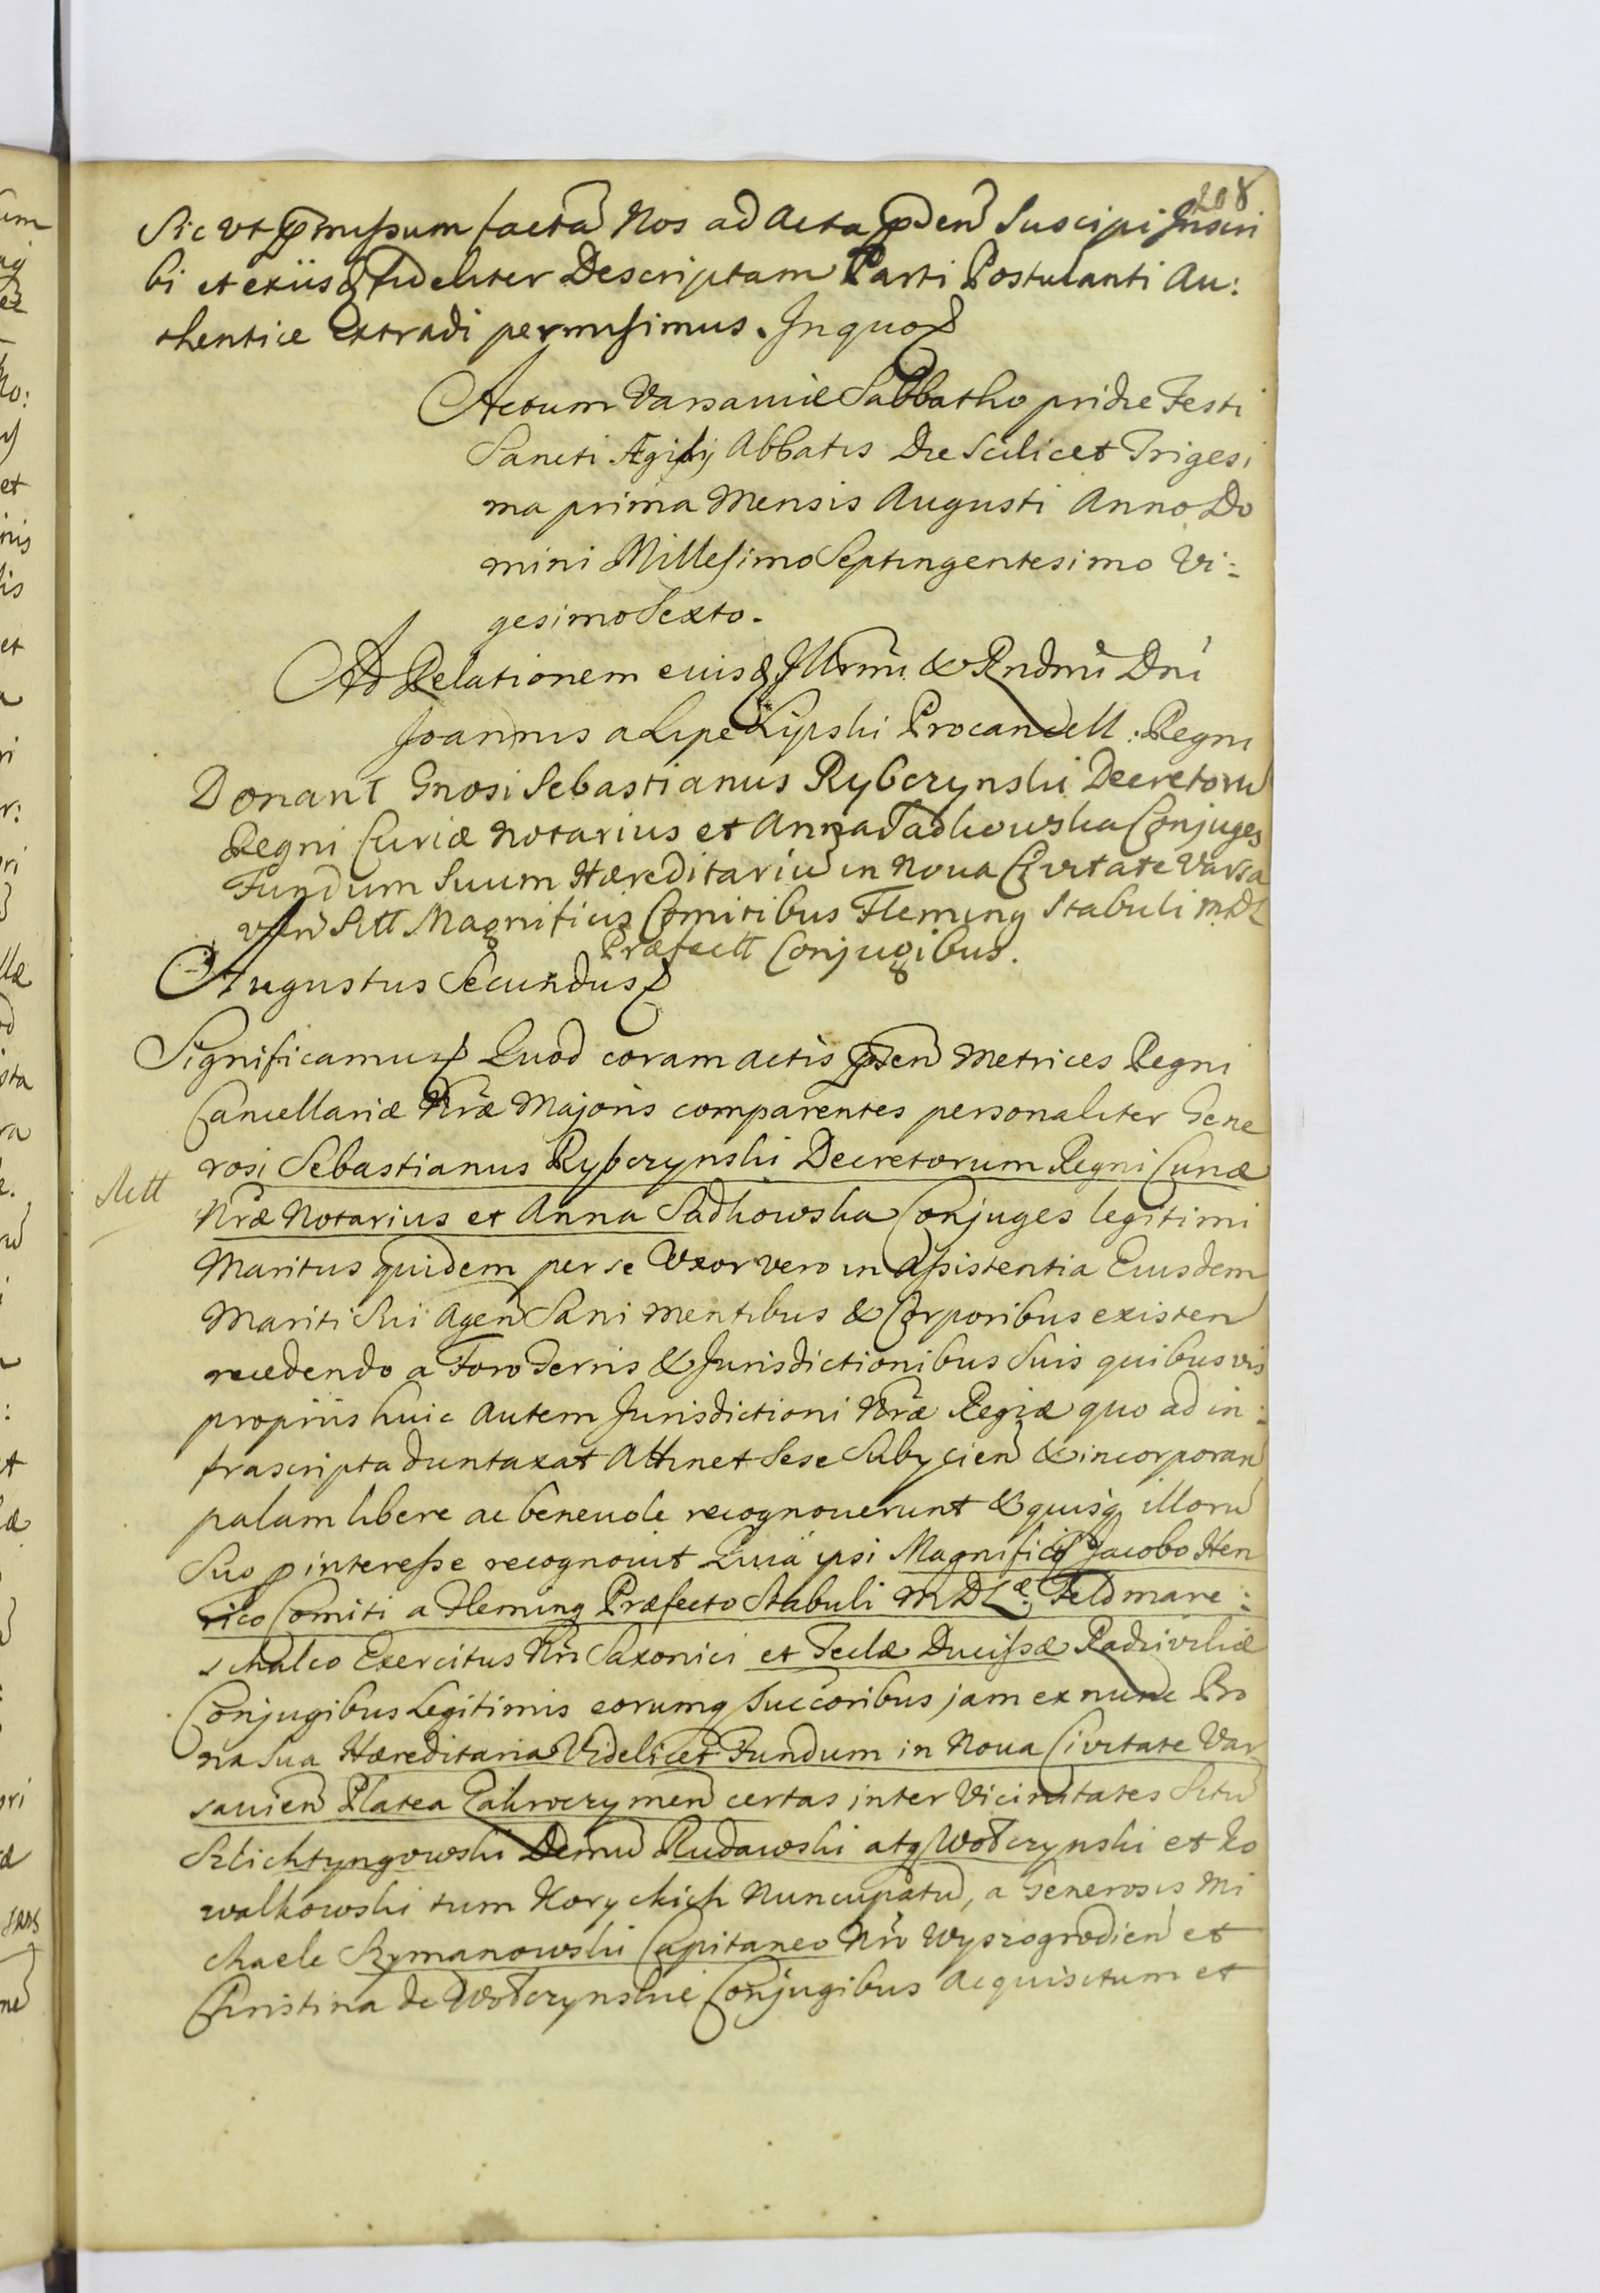 208
Sic vt pmissum factã Nos ad Acta pden Suscipi Inscri
bi et exiisq fideliter Descriptam Parti Postulanti Au:
thentice Extradi permisimus. In quo
Actum Varsaviæ Sabbatho pridie Festi
Sancti Ægidij Abbatis Die Scilicet Trigesi
ma prima Mensis Augusti Anno Do
mini Millesimo Septingentesimo Vi:
gesimo Sexto.
Ad Relationem eiusq Illrmi & Rndmi Dni
Joannis a Lipe Lipski Procancell: Regni
Donant Gnosi Sebastianus Rybczynski Decretoru
Regni Curiæ Notarius et Anna Sadkowska Conjuges
Fundum Suum Hæreditariu in Noua Civitate Varsa
vien Sitt Magnificis Comitibus Fleming Stabuli MDL
Præfectt Conjugibus.
Augustus Secundus
Significamus Quod coram actis pden Metrices Regni
Cancellariæ Nræ Majoris comparentes personaliter Gene
rosi Sebastianus Rybczynski Decretorum Regni Curiæ
Nræ Notarius et Anna Sadkowska Conjuges legitimi
Maritus quidem per se Vxor vero in Assistentia Eiusdem
Mariti Sui Agen Sani mentibus & Corporibus existen
recedendo a Foro Terris & Jurisdictionibus Suis quibusvis
propriis huic Autem Jurisdictioni Nræ Regiæ quo ad in:
frascripta duntaxat Attinet Sese Subijcien & incorporan
palam libere ac beneuole recognouerunt & quisq illoru
Suo p interesse recognouit Quia ipsi Magnifico Jacobo Hen
rico Comiti a Fleming Præfecto Stabuli MDLæ: Feldmare:
schalco Exercitus Nri Saxonici et Teclæ Ducissæ Radziviliæ
Conjugibus Legitimis eorumq Succoribus jam ex nunc Bo
na Sua Hæreditaria Videlicet Fundum in Noua Civitate Var
sauien Platea Zakroczymen certas inter Vicinitates Situ
Szlichtyngowski Demu Rudawski atq Wołczynski et Ko
walkowski tum Koryckich Nuncupatu, a Generosis Mi
chaele Szymanowski Capitaneo Nro Wyszogrodien et
Christina de Wołczynskie Conjugibus Acquisitum et